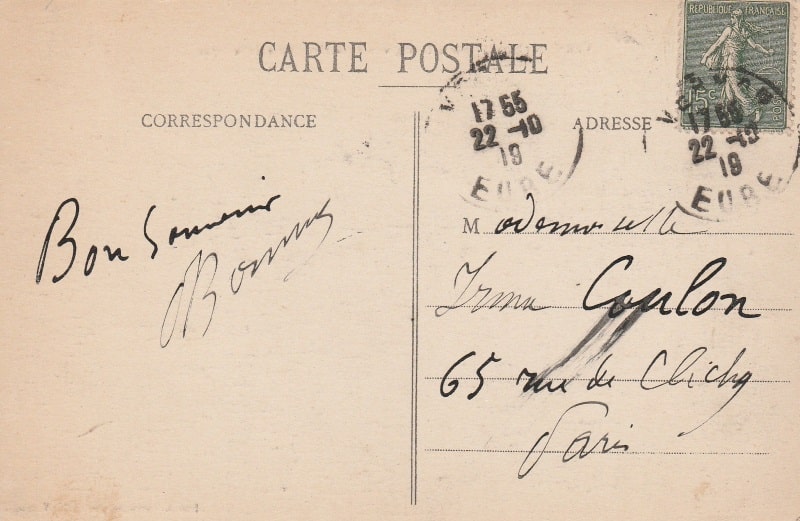 RÉPUBLIQUE FRANÇAISE
15c
POSTES
CARTE POSTALE
CORRESPONDANCE
ADRESSE
17 55
22 -10
19
EURE
VERNON
17 55
22 -10
19
EURE
Bon Souvenir
Mademoiselle
Irma Coulon
65 rue de Clichy
Paris